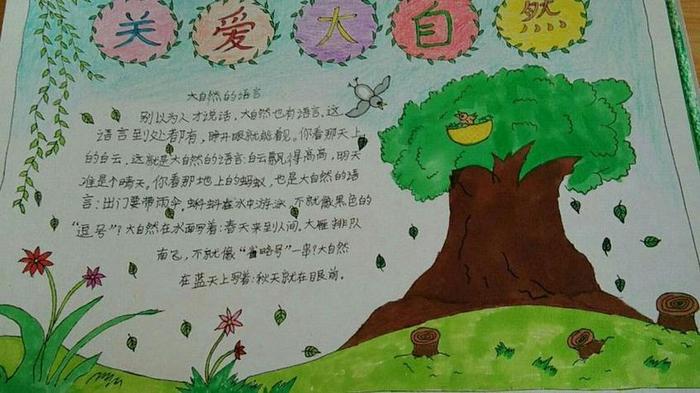 关爱大自然
大自然的语言
别以为人才说话，大自然也有语言。这
语言到处都有，睁开眼就能看见。你看那天上
的白云，这就是大自然的语言：白云飘得高高，明天
准是个晴天。你看那地上的蚂蚁，也是大自然的语
言：出门要带雨伞。蝌蚪在水中游泳，不就像黑色的
“逗号”？大自然在水面写着：春天来到人间。大雁排队
南飞，不就像“省略号”一串？大自然
在蓝天上写着：秋天就在眼前。